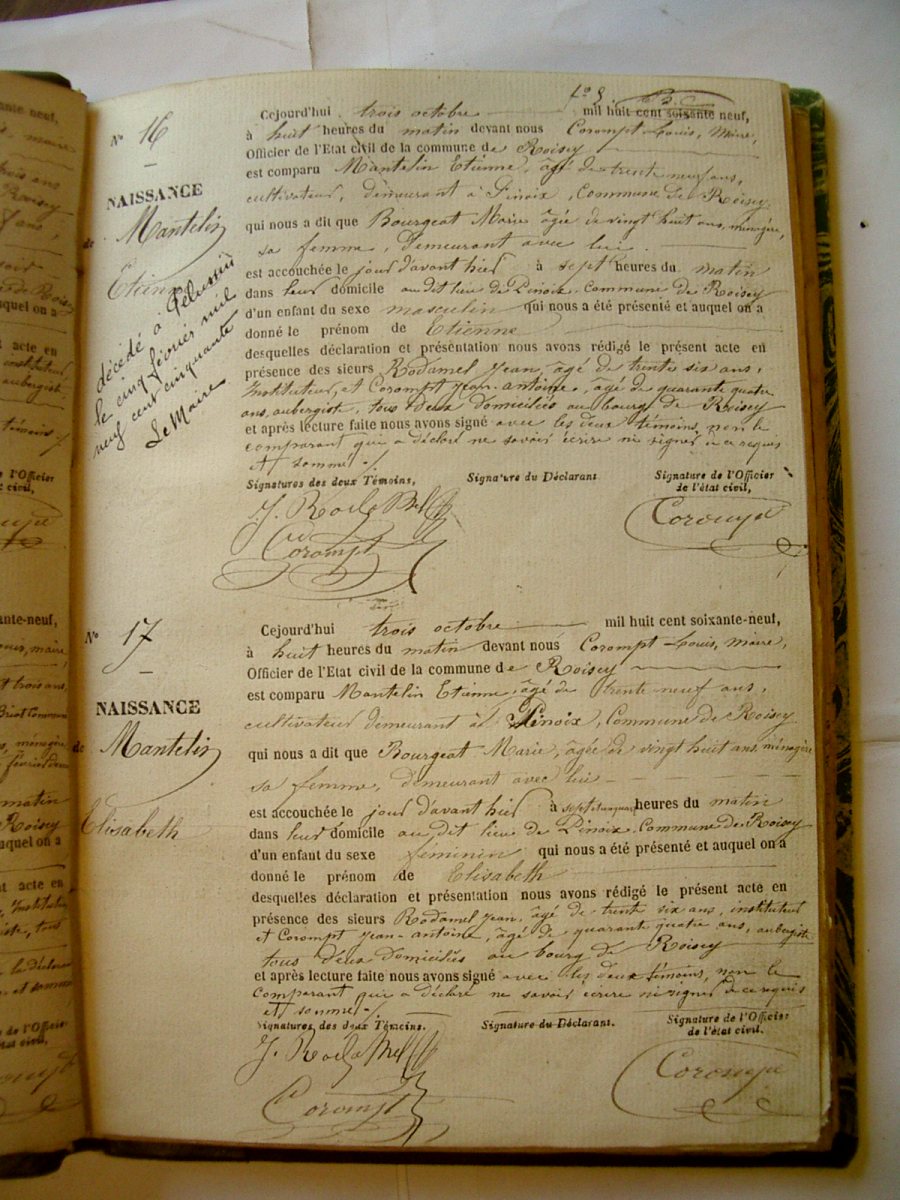 Cejourd'hui trois octobre mil huit cent soixante neuf,
N° 16
à huit heures du matin devant nous Corompt Louis, Maire,
Officier de l'Etat civil de la commune de Roisey
est comparu Mantelin Etienne, âgé de trente neuf ans,
cultivateur, demeurant à Pinoix, Commune de Roisey,
NAISSANCE
de Mantelin
Etienne
qui nous a dit que Bourgeat Marie âgée de vingt huit ans, ménagère,
sa femme, demeurant avec lui.
est accouchée le jour d'avant hier à sept heures du matin
dans leur domicile au dit lieu de Pinoix, Commune de Roisey
d'un enfant du sexe masculin qui nous a été présenté et auquel on a
donné le prénom de Etienne
desquelles déclaration et présentation nous avons rédigé le présent acte en
présence des sieurs Rodamel Jean, âgé de trente six ans,
Instituteur, et Corompt Jean-antoine, âgé de quarante quatre
ans, aubergiste, tous deux domiciliés au bourg de Roisey
et après lecture faite nous avons signé avec les deux témoins, non le
comparant qui a déclaré ne savoir écrire ni signer à ce requis
et sommé ./.
décédé à Pélussin
le cinq février mil
neuf cent cinquante
Le Maire
Signatures des deux Témoins,
Signature du Déclarant.
Signature de l'Officier
de l'état civil,
J. Rodamel
Corompt
Corompt
Cejourd'hui trois octobre mil huit cent soixante-neuf,
N° 17
à huit heures du matin devant nous Corompt Louis, Maire,
Officier de l'Etat civil de la commune de Roisey
est comparu Mantelin Etienne, âgé de trente neuf ans,
cultivateur demeurant à Pinoix, Commune de Roisey
NAISSANCE
de Mantelin
Elisabeth
qui nous a dit que Bourgeat Marie, âgée de vingt huit ans, ménagère
sa femme, demeurant avec lui
est accouchée le jour d'avant hier à sept heures du matin
dans leur domicile au dit lieu de Pinoix, Commune de Roisey
d'un enfant du sexe féminin qui nous a été présenté et auquel on a
donné le prénom de Elisabeth
desquelles déclaration et présentation nous avons rédigé le présent acte en
présence des sieurs Rodamel Jean, âgé de trente six ans, instituteur
et Corompt Jean-antoine, âgé de quarante quatre ans, aubergiste
tous deux domiciliés au bourg de Roisey
et après lecture faite nous avons signé avec les deux témoins, non le
comparant qui a déclaré ne savoir écrire ni signer à ce requis
et sommé ./.
Signatures des deux Témoins.
Signature du Déclarant.
Signature de l'Officier
de l'état civil.
J. Rodamel
Corompt
Corompt